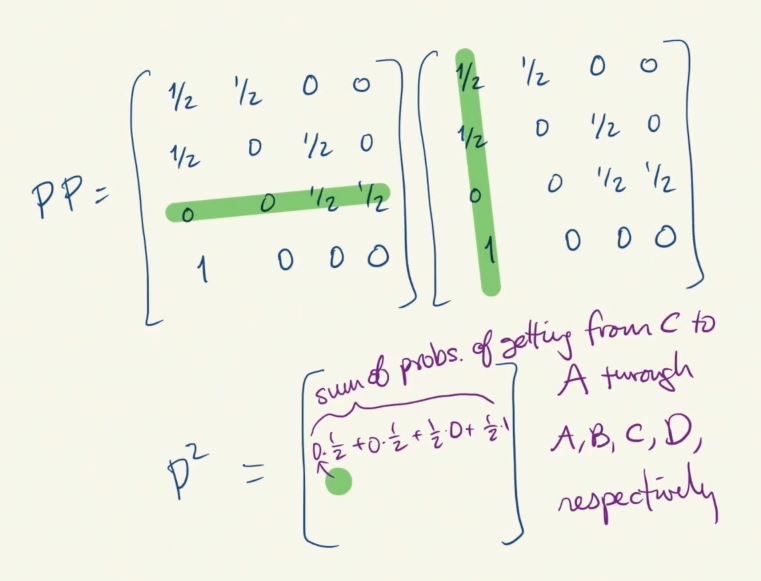 PP = [ 1/2 1/2 0 0 ] [ 1/2 1/2 0 0 ]
[ 1/2 0 1/2 0 ] [ 1/2 0 1/2 0 ]
[ 0 0 1/2 1/2 ] [ 0 0 1/2 1/2 ]
[ 1 0 0 0 ] [ 1 0 0 0 ]
sum of probs. of getting from C to
A through
A, B, C, D,
respectively
P² = [ 0·1/2 + 0·1/2 + 1/2·0 + 1/2·1 ]